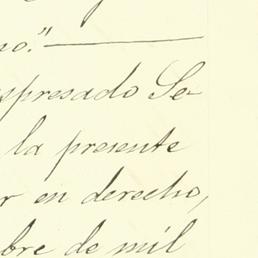 no."
espresado Se-
la presente
r en derecho,
bre de mil